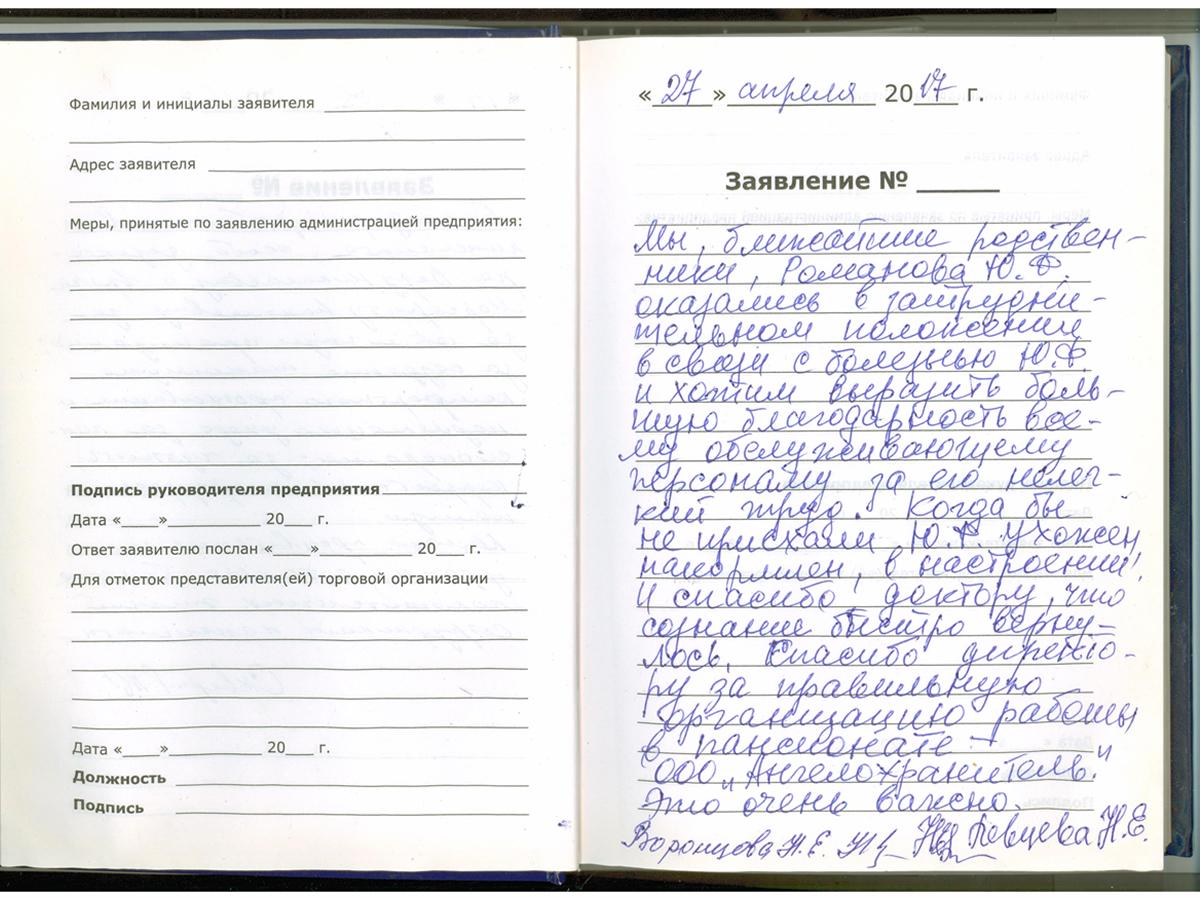 Фамилия и инициалы заявителя
Адрес заявителя
Меры, принятые по заявлению администрацией предприятия:
Подпись руководителя предприятия
Дата «____»____________ 20___ г.
Ответ заявителю послан «____»____________ 20___ г.
Для отметок представителя(ей) торговой организации
Дата «____»____________ 20___ г.
Должность
Подпись
« 27 » апреля 2017 г.
Заявление № ______
Мы, ближайшие родствен-
ники, Романова Ю.Ф.
оказались в затрудни-
тельном положении
в связи с болезнью Ю.Ф.
и хотим выразить боль-
шую благодарность все-
му обслуживающему
персоналу за его нелег-
кий труд. Когда бы
не приехали Ю.Ф. ухожен,
накормлен, в настроении!
И спасибо доктору, что
сознание быстро верну-
лось. Спасибо директо-
ру за правильную
организацию работы
в пансионате -
ООО „Ангелохранитель."
Это очень важно.
Воронцова Н.Е. Певцева Н.Е.